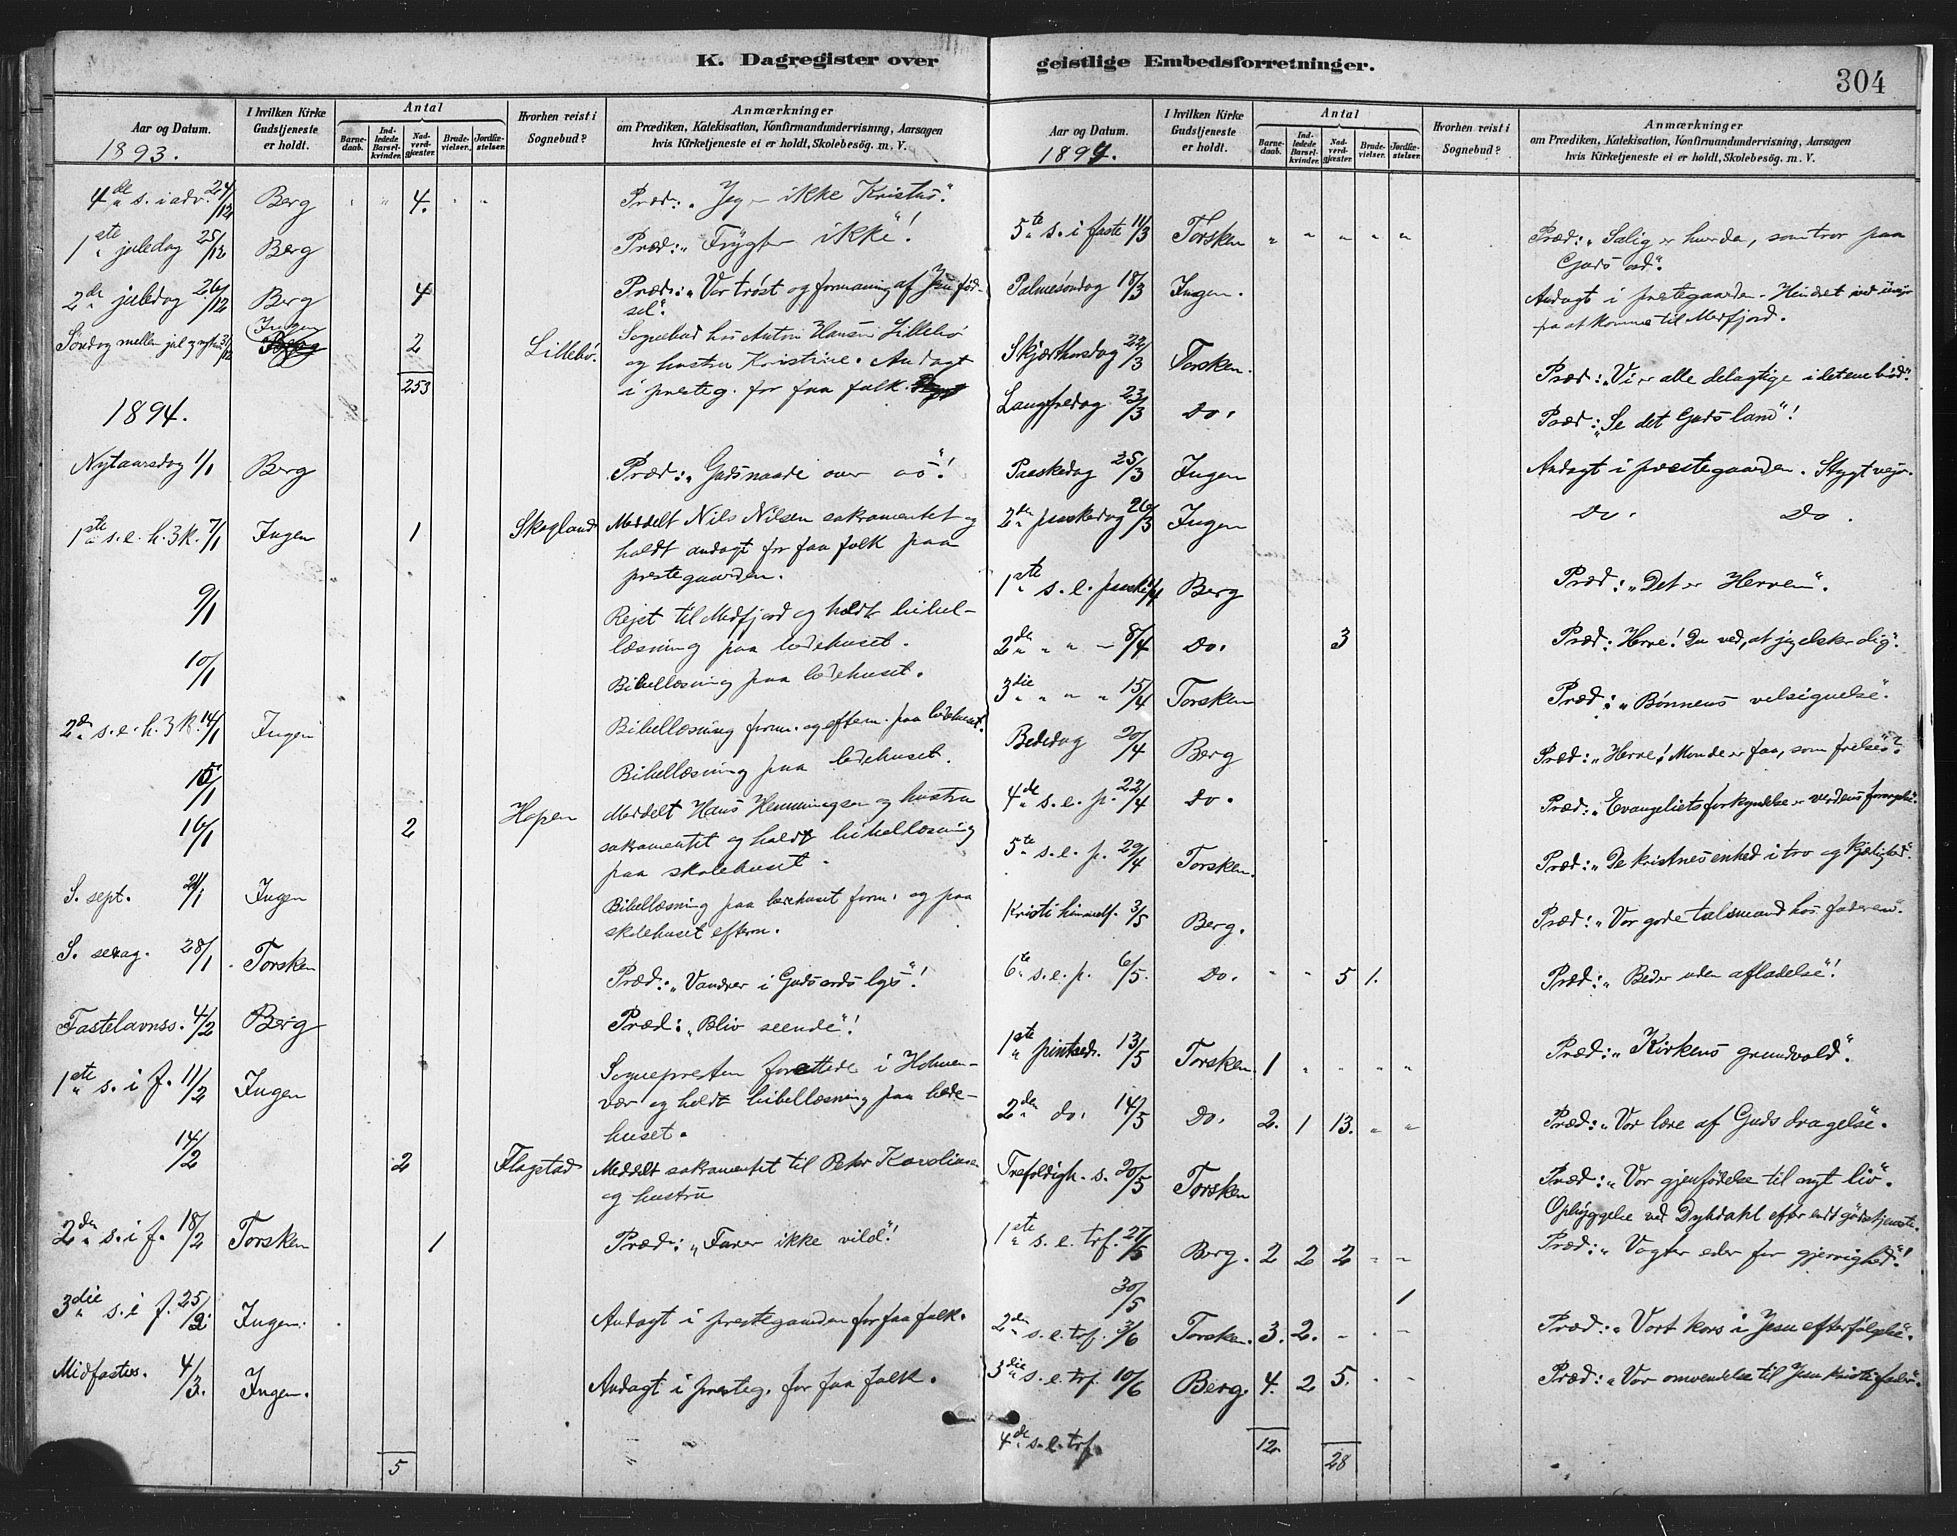 K. Dagregister over geistlige Embedsforretninger.
304
Aar og Datum.
1893.
I hvilken Kirke Gudstjeneste er holdt.
Antal
Barnedaab.
Indledede Barselkvinder.
Nadverdgjæster.
Brudevielser.
Jordfæstelser.
Hvorhen reist i Sognebud?
Anmærkninger
om Prædiken, Katekisation, Konfirmandundervisning, Aarsagen
hvis Kirketjeneste ei er holdt, Skolebesög. m. V.
4de s. i adv. 24/12 Berg 4. Præd: „Jeg – ikke Kristus“.
1ste juledag 25/12 Berg Præd: „Frygter ikke“!
2de juledag 26/12 Berg 4 Præd: „Vor trøst og formaning af Jesu fød-
sel“.
Søndag mellem jul og nytaar 31/12 Ingen 2 Lillebø. Sognebud hos Anton Hansen Lillebø
og hustru Kristine. Andagt
253 i presteg. for faa folk.
1894.
Nytaarsdag 1/1 Berg Præd: „Guds naade over os“!
1ste s. e. h. 3 k. 7/1 Ingen 1 Skogland Meddelt Nils Nilsen sakramentet og
holdt andagt for faa folk paa
prestegaarden.
9/1 Rejst til Medfjord og holdt bibel-
læsning paa bedehuset.
10/1 Bibellæsning paa bedehuset.
2den s. e. h. 3 k. 14/1 Ingen Bibellæsning form. og efterm. paa bedehuset.
15/1 Bibellæsning paa bedehuset.
16/1 2 Hopen Meddelt Hans Henningsen og hustru
sakramentet og holdt bibellæsning
paa skolehuset.
S. sept. 21/1 Ingen Bibellæsning paa bedehuset form. og paa
skolehuset efterm.
S. sexag. 28/1 Torsken Præd: „Vandrer i Guds ords lys“!
Fastelavnss. 4/2 Berg Præd: „Bliv seende“!
1ste s. i f. 11/2 Ingen Sognepresten forrettede i Holmen-
vær og holdt bibellæsning paa bede-
huset.
14/2 2 Flagstad Meddelt sakramentet til Peder Karolinsen
og hustru
2den s. i f. 18/2 Torsken 1 Præd: „Farer ikke vild“!
3die s. i f. 25/2 Ingen. Andagt i prestegaarden for faa folk.
Midfastes. 4/3. Ingen. Andagt i presteg. for faa folk.
5
Aar og Datum.
1894.
I hvilken Kirke Gudstjeneste er holdt.
Antal
Barnedaab.
Indledede Barselkvinder.
Nadverdgjæster.
Brudevielser.
Jordfæstelser.
Hvorhen reist i Sognebud?
Anmærkninger
om Prædiken, Katekisation, Konfirmandundervisning, Aarsagen
hvis Kirketjeneste ei er holdt, Skolebesög. m. V.
5te s. i faste 11/3 Torsken „ „ „ „ „ Præd: „Salig er hver den, som tror paa
Guds ord“.
Palmesøndag 18/3 Ingen. Andagt i prestegaarden. Hindret ved uvejr
fra at komme til Medfjord.
Skjærthorsdag 22/3 Torsken. Præd: „Vi er alle delagtige i det ene brød“.
Langfredag 23/3 Do. Præd: „Se det Guds lam“!
Paaskedag 25/3 Ingen Andagt i præstegaarden. Stygt vejr.
2den paaskedag 26/3 Ingen Do. Do.
1ste s. e. paaske 1/4 Berg Præd: „Det er Herren“.
2den „ „ – 8/4 Do. 3 Præd: Herre! Du ved, at jeg elsker dig“.
3die „ „ „ 15/4 Torsken Præd: „Bønnens velsignelse“.
Bededag 20/4 Berg Præd: „Herre! Monde er faa, som frelses“?
4de s. e. p. 22/4 Do. Præd: „Evangeliets forkyndelse er verdens forargelse“.
5te s. e. p. 29/4 Torsken. Præd: „De kristnes enhed i tro og kjærlighed“.
Kristi himmelf. 3/5 Berg. Præd: „Vor gode talsmand hos faderen“.
6te s. e. p. 6/5. Do. „ „ 5 1. Præd: „Beder uden afladelse“!
1ste pintsed. 13/5 Torsken. 1 „ „ „ „ Præd: „Kirkens grundvold“.
2den do. 14/5 Do. 2. 1 13. „ „ Præd: „Vor lære af Guds dragelse“.
Trefoldigh. s. 20/5 Torsken Præd: „Vor gjenfødelse til nyt liv“.
Opbyggelse ved Dybdahl efter endt gudstjeneste.
1ste s. e. trf. 27/5 Berg. 2 2 2 – – Præd: „Vogter eder for gjerrighed“!
30/5 1
2den s. e. trf. 3/6 Torsken. 3. 2. – . – Præd: „Vort kors i Jesu efterfølgelse“.
3die s. e. trf. 10/6 Berg. 4. 2 5. . – Præd: „Vor omvendelse til Jesu Kristi fader“.
4de s. e. trf.
12. 28